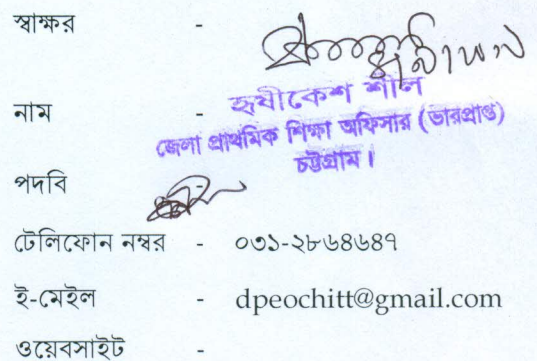 স্বাক্ষর -
নাম - হৃষীকেশ শীল
জেলা প্রাথমিক শিক্ষা অফিসার (ভারপ্রাপ্ত)
চট্টগ্রাম।
পদবি -
টেলিফোন নম্বর - ০৩১-২৮৬৪৬৪৭
ই-মেইল - dpeochitt@gmail.com
ওয়েবসাইট -